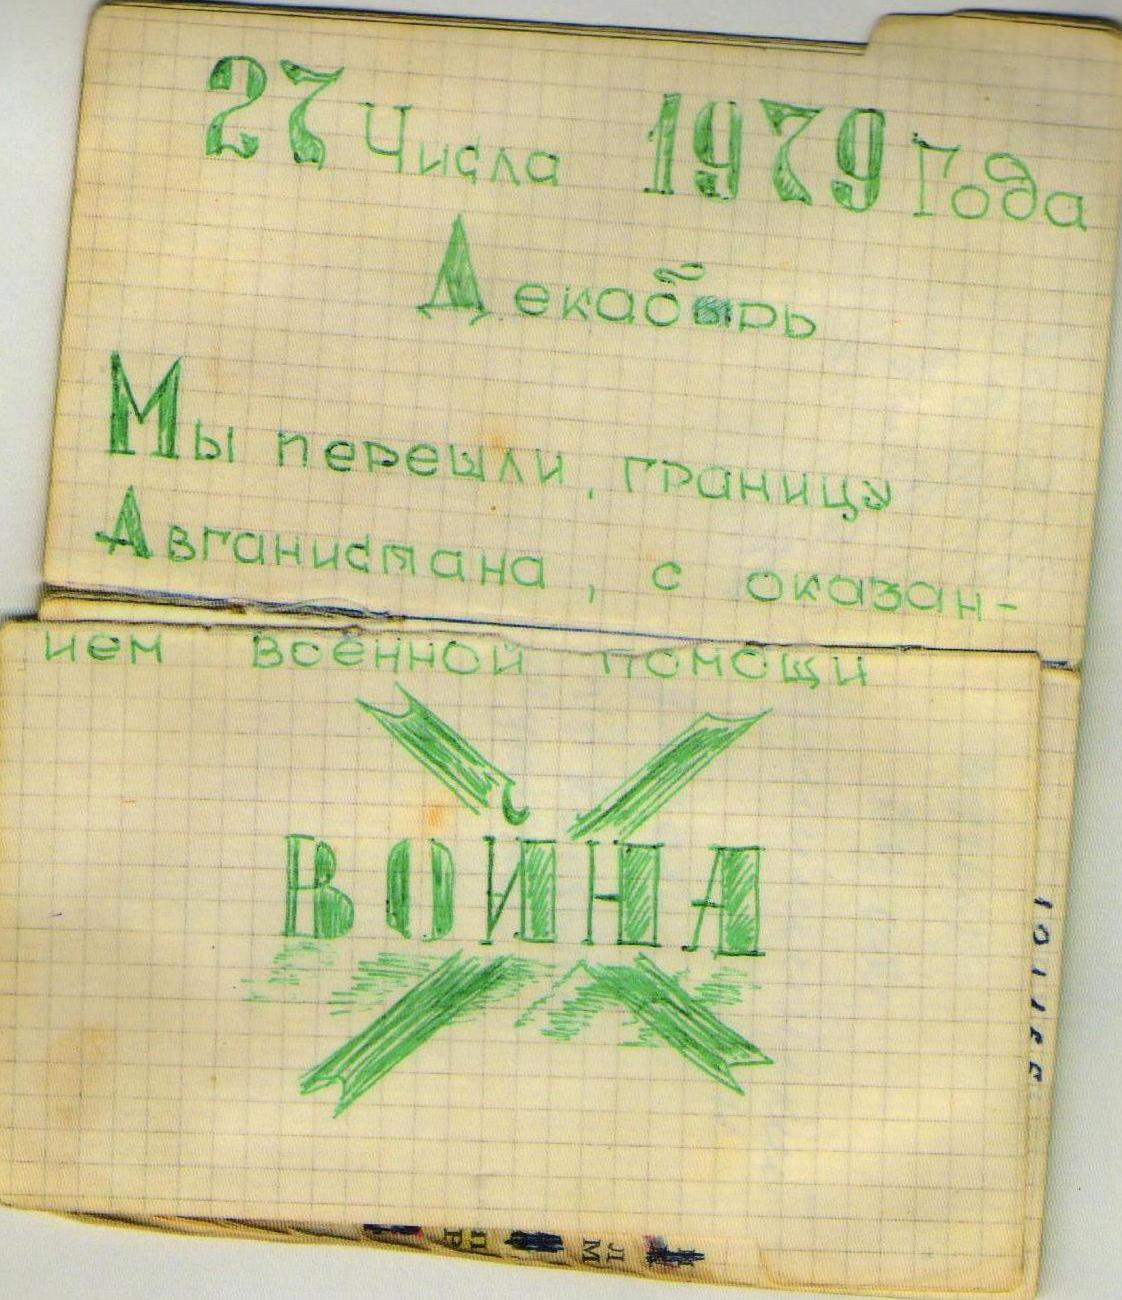 27 Числа 1979 Года
Декабырь
Мы перешли, границу
Авганистана, с оказан-
ием военной помощи
ВОЙНА
Л
М
П
Р